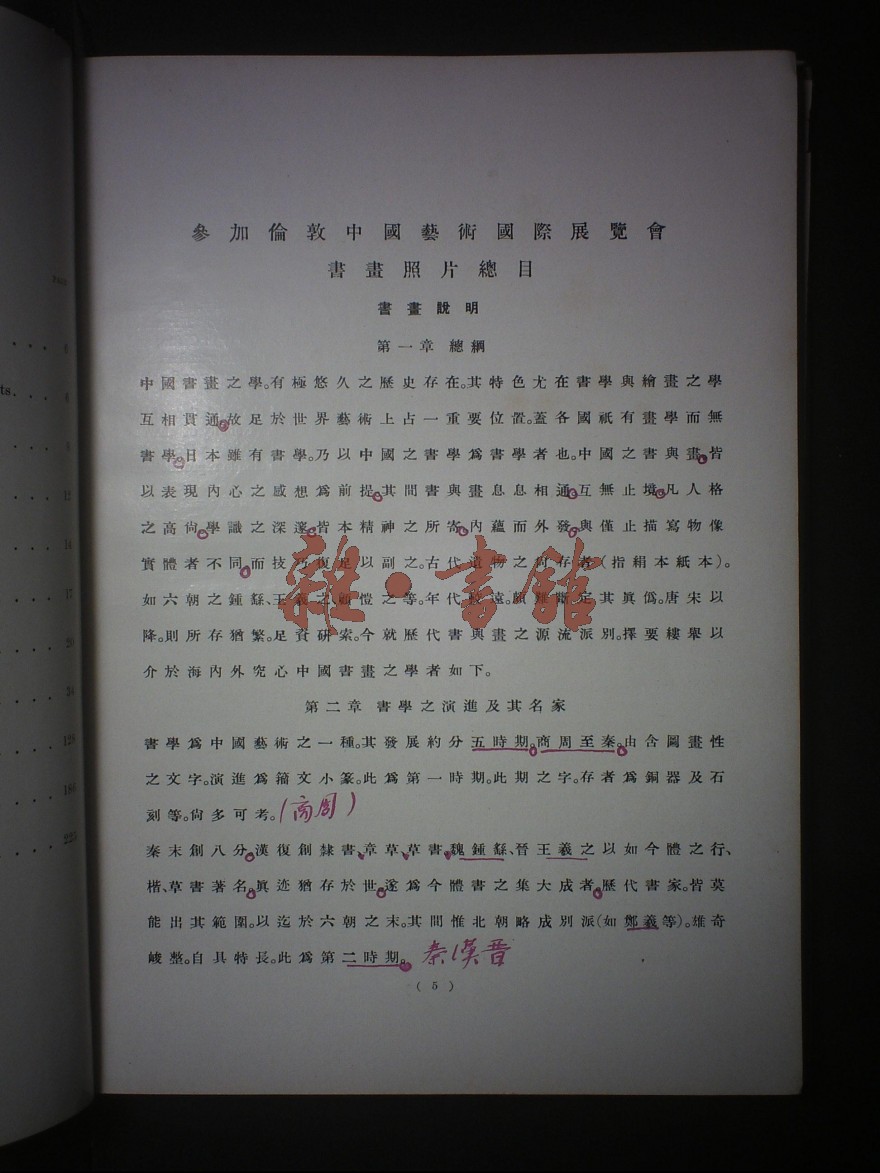 ts.
6
9
12
14
17
20
34
128
184
225
參加倫敦中國藝術國際展覽會
書畫照片總目
書畫說明
第一章 總綱
中國書畫之學。有極悠久之歷史存在。其特色尤在書學與繪畫之學
互相貫通。故足於世界藝術上占一重要位置。蓋各國祇有畫學而無
書學。日本雖有書學。乃以中國之書學爲書學者也。中國之書與畫。皆
以表現內心之感想爲前提。其間書與畫息息相通。互無止境。凡人格
之高尙。學識之深邃。皆本精神之所寄。內蘊而外發。與僅止描寫物像
實體者不同。而技巧復足以副之。古代遺物之尙存者(指絹本紙本)。
如六朝之鍾繇、王羲之、顧愷之等。年代較遠。頗難斷定其眞僞。唐宋以
降。則所存猶繁。足資研索。今就歷代書與畫之源流派別。擇要縷舉以
介於海內外究心中國書畫之學者如下。
第二章 書學之演進及其名家
書學爲中國藝術之一種。其發展約分五時期。商周至秦。由含圖畫性
之文字。演進爲籀文小篆。此爲第一時期。此期之字。存者爲銅器及石
刻等。尙多可考。(商周)
秦末創八分。漢復創隸書、章草、草書。魏鍾繇、晉王羲之以如今體之行、
楷、草書著名。眞迹猶存於世。遂爲今體書之集大成者。歷代書家。皆莫
能出其範圍。以迄於六朝之末。其間惟北朝略成別派(如鄭羲等)。雄奇
峻整。自具特長。此爲第二時期。秦漢晋
(5)
雜·書館